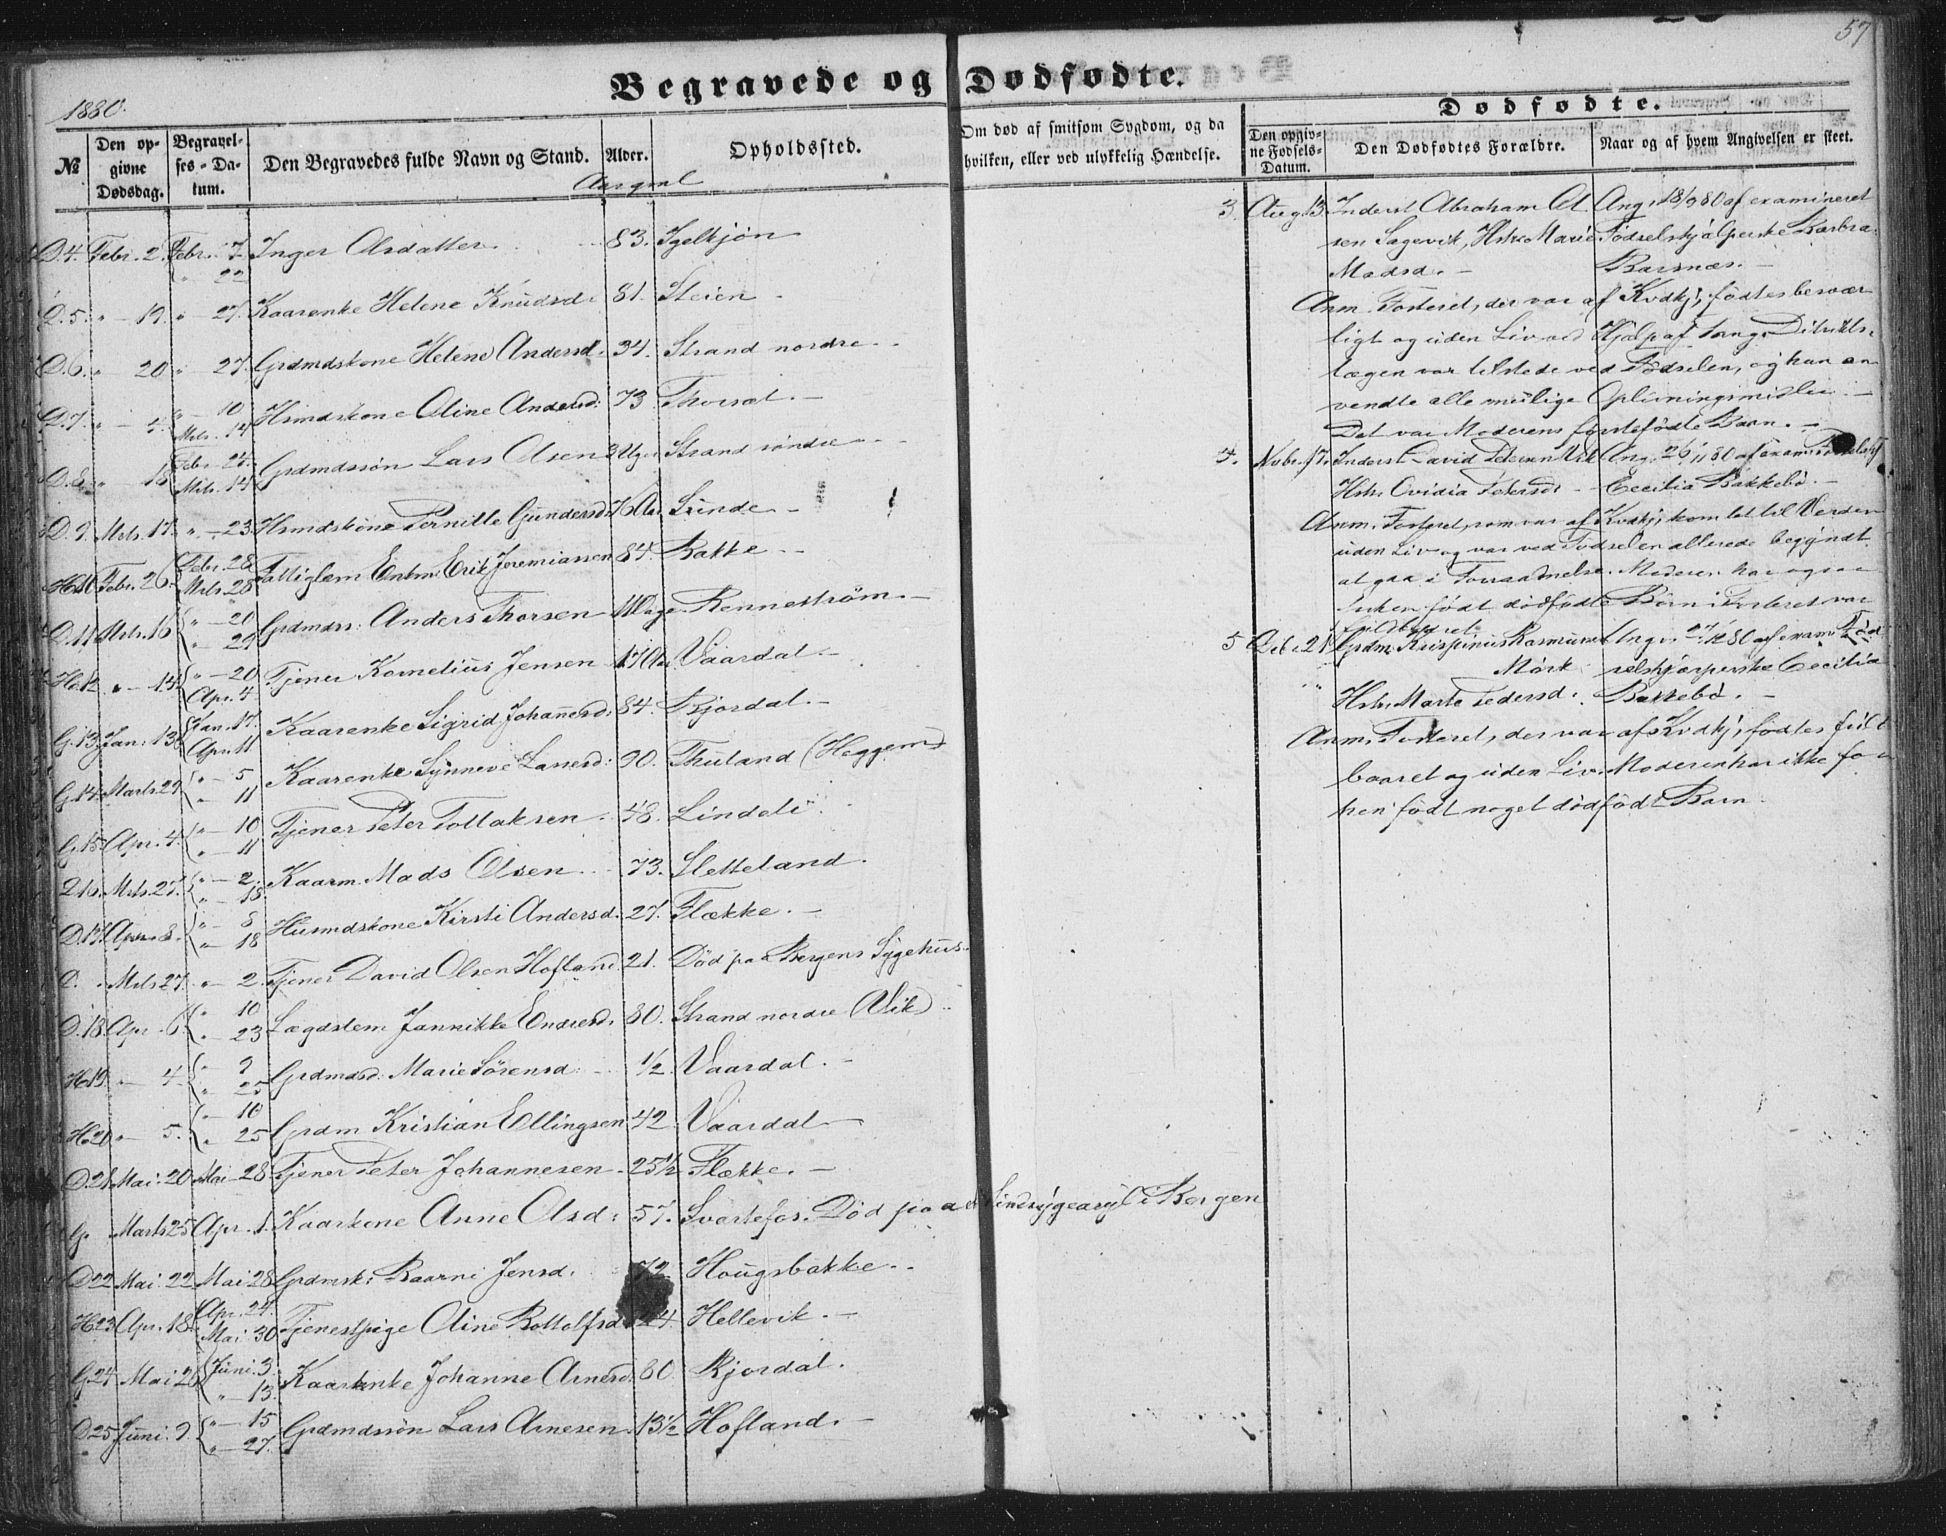 57
1880.
Begravede og Dødfødte.
Dødfødte.
№
Den op-
givne
Dødsdag.
Begravel-
ses-Da-
tum.
Den Begravedes fulde Navn og Stand.
Alder.
Opholdssted.
Om død af smitsom Sygdom, og da
hvilken, eller ved ulykkelig Hændelse.
Den opgiv-
ne Fødsels-
Datum.
Den Dødfødtes Forældre.
Naar og af hvem Angivelsen er skeet.
D.4. Febr. 2. Febr. 7 " 22 Inger Olsdatter 83. Igelkjøn
D.5. " 19. " 27. Kaarenke Helene Knudsd: 81. Steien
D.6. " 20 " 27. Grdmdskone Helene Andersd. 34. Strand nordre
D.7. " 4. " 10 Mrts. 14 Hsmdskone Oline Andersd: 73. Thorsal.
D.8. " 18 Febr. 24. Mrts. 14 Grdmdssøn Lars Olsen 3 Uger Strand søndre
D.9. Mrts. 17. " 23 Hsmdskone Pernille Gundersd: 76 Aar Sunde
H.10 Febr. 26. Febr. 28 Mrts. 28 Fattiglem Enkm. Erik Jeremiassen 84. Bakke
D.11 Mrts. 16 " 20 " 29 Grdmdss: Anders Thorsen 11 Dage Rennestrøm.
H.12 " 14 " 20 Apr. 4 Tjener Kornelius Jensen 17 Aar Vaardal.
G.13 Jan: 13 Jan. 17. Apr. 11 Kaarenke Sigrid Johannesd: 84. Bjordal.
G.14 Marts 29 " 5 " 11 Kaarenke Synneve Larsd: 90. Thuland (Heggem)
G.15 Apr. 4. " 10 " 11 Tjener Peter Tollaksen. 48. Lindeli
D.16. Mrts. 27. " 2. " 18 Kaarm. Mads Olsen 73. Sletteland.
D.17. Apr. 8. " 8 " 18 Husmdskone Kirsti Andersd. 27. Flække.
D. Mrts 27. " 2. Tjener David Olsen Hofland 21. Død paa Bergens Sygehus.
D.18. Apr. 6. " 10 " 23 Lægdslem Jannikke Endresd. 80. Strand nordre (Vik)
H.19. " 4. " 9 " 25 Grdmdsd: Marie Sørensd. 1/2 Vaardal.
H.20 " 5. " 10 " 25 Grdm Kristian Ellingsen 42. Vaardal
D.21. Mai. 20 Mai 28. Tjener Peter Johannesen. 25 1/2 Flække.
G. Marts 25 Apr. 1. Kaarkone Anne Olsd: 57. Svartefos. Død paa et Sindsygeasyl i Bergen
D.22 Mai. 22. Mai 28 Grdmsk: Baarni Jensd. 72. Hougsbakke.
H.23 Apr. 18. Apr. 24. Mai. 30 Tjenestpige Oline Bottolfsd 24. Hellevik.
G.24 Mai 26 Juni. 3 " 13 Kaarenke Johanne Arnesd. 80. Bjordal.
D.25 Juni. 9. " 15 " 27. Grdmdssøn Lars Arnesen. 13 1/2 Hofland.
3. Aug. 13 Inderst Abraham Ol Ang. 18/9 80 af examineret
sen Sagevik, Hstr. Marie Fødselshjælperske Barbra
Madsd. Barsnæs.
Anm. Fosteret, der var af Kvdkj, fødtes besvær
ligt og uden Liv ved Hjælp af Tang. Distrikts.
lægen var tilstede ved Fødselen, og han an
vendte alle mulige Oplivningsmidler.
Det var Moderens førstefødte Barn.
4. Nvbr. 17. Inderst David Petersen Vik Ang. 26/11 80 af exam. Fødselshj
Hstr. Ovidia Petersd. Cecilia Bakkebø.
Anm. Fosteret, som var af Kvdkj, kom let til Verden
uden Liv og var ved Fødselen allerede begyndt
at gaa i Forraadnelse. Moderen har ogsaa
født dødfødte Børn. Fosteret var
fuldbaaret.
5 Dcbr. 21 Grdm. Krispinus Rasmussen Ang. 27/12 80 af exam. Fød
Mørk selshjælperske Cecilia
Hstr. Marte Pedersd. Bakkebø.
Anm. Fosteret, der var af Kvdkj, fødtes fuld
baaret og uden Liv. Moderen har ikke før
hen født noget dødfødt Barn.